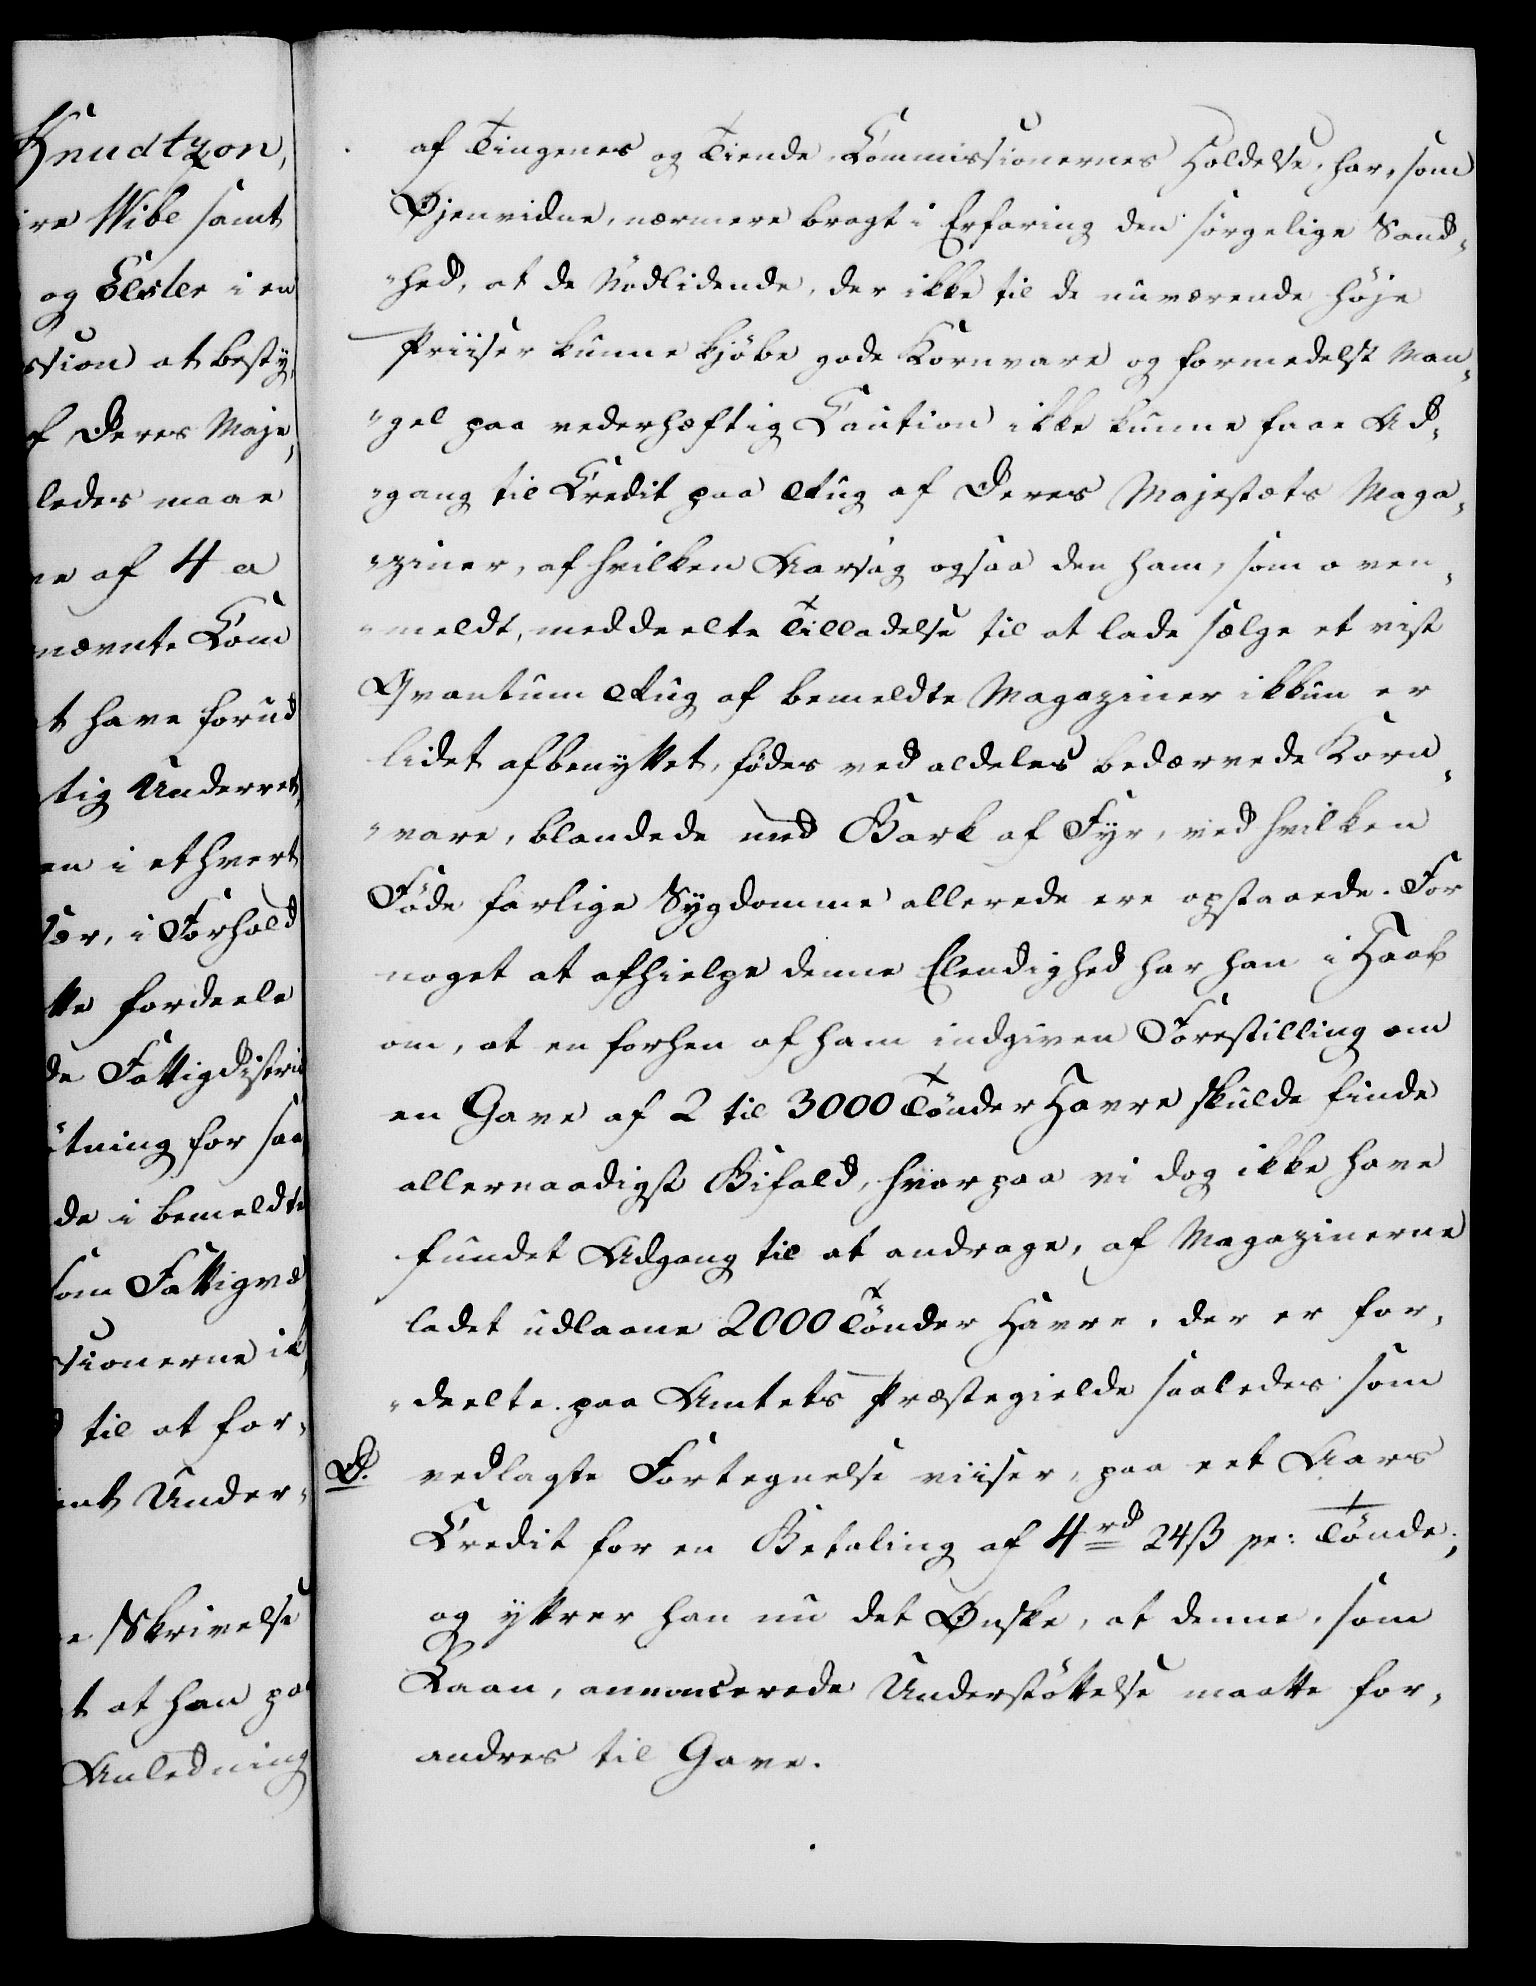 Knudtzon,
re Wibe samt
og Elster i en
ssion at besty,
f Deres Maje,
ledes maae
ne af 4 a
nævnte Com
t have forud
tig Underret,
en i ethvert
sær, i Forhold
tte fordeele
de Fattigdistric
tning for saa
de i bemeldte
som Fattigvæ
sionerne ik,
til at for,
Under,
e Skrivelse
t at han paa
Anledning
af Tingenes og Tiende-Commissionernes Holdelse, har, som
Øjenvidne, nærmere bragt i Erfaring den sörgelige Sand,
"hed, at de Nödlidende, der ikke til de nuværende höje
Priiser kunne kjöbe gode Kornvare og formedelst Man,
"gel paa vederhæftig Caution ikke kunne faae Ad,
"gang til Credit paa Rug af Deres Majestæts Maga,
"ziner, af hvilken Aarsag ogsaa den ham, som oven,
"meldt, meddeelte Tilladelse til at lade sælge et vist
Qvantum Rug af bemeldte Magaziner ikkun er
lidet afbenyttet, födes ved aldeles bedærvede Korn,
"vare, blandede med Bark af Fyr, ved hvilken
Föde farlige Sygdomme allerede ere opstaaede. For
noget at afhielpe denne Elendighed har han i Haab
om, at en forhen af ham indgiven Forestilling om
en Gave af 2 til 3000 Tönder Havre skulde finde
allernaadigst Bifald, hvorpaa vi dog ikke have
fundet Adgang til at andrage, af Magazinerne
ladet udlaane 2000 Tönder Havre, der er for,
"deelte paa Amtets Præstegielde saaledes som
D. vedlagte Fortegnelse viiser, paa eet Aars
Credit for en Betaling af 4 rd 24 ß pr: Tönde;
og yttrer han nu det Ønske, at denne, som
Laan, annoncerede Understöttelse maatte for,
andres til Gave.